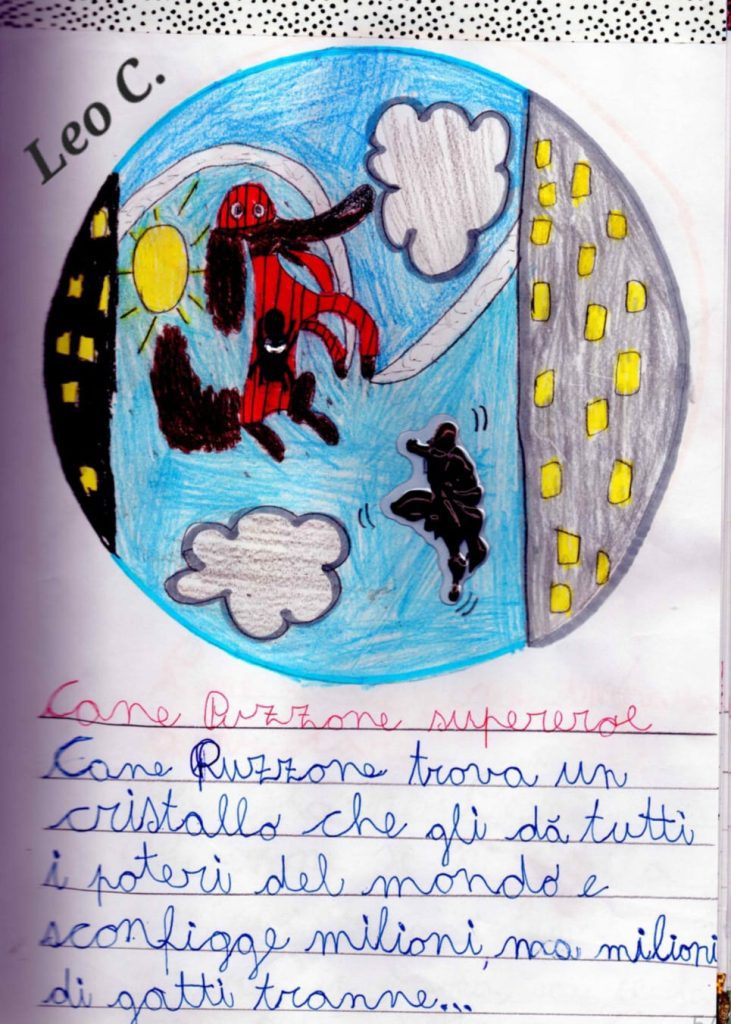 Leo C.
Cane Puzzone supereroe
Cane Puzzone trova un
cristallo che gli dà tutti
i poteri del mondo e
sconfigge milioni, ma milioni
di gatti tranne...